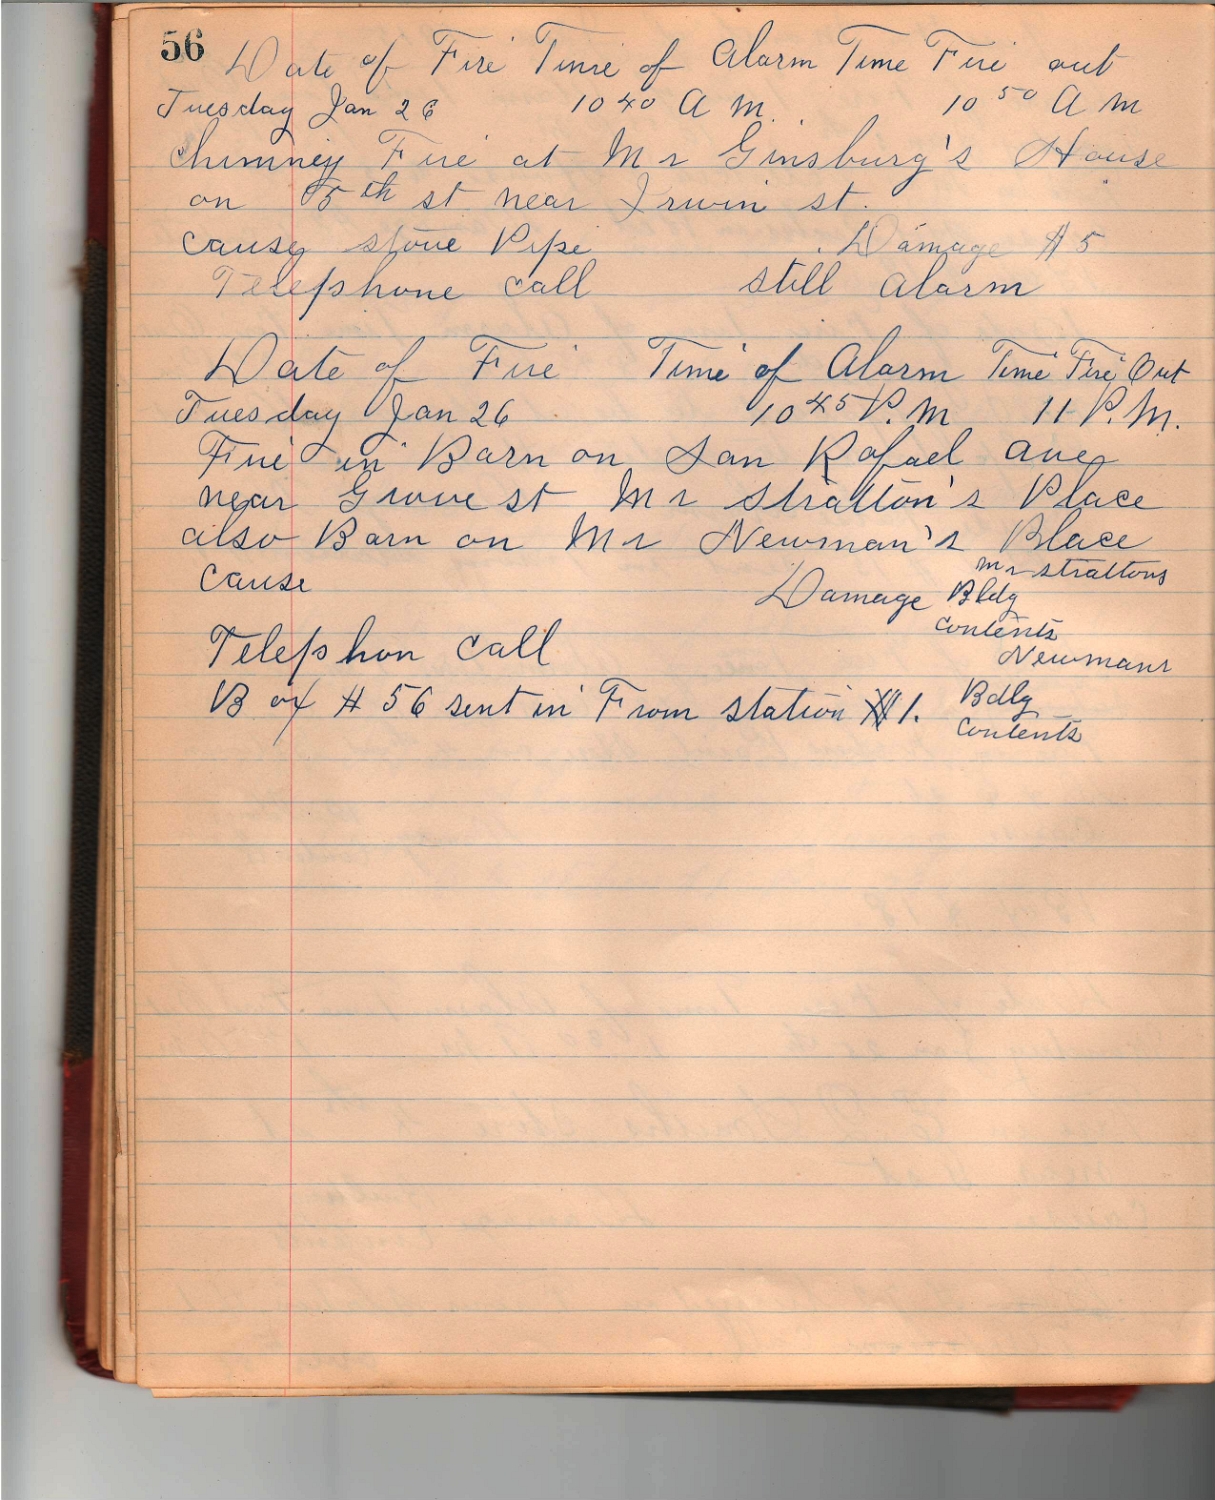 56
Date of Fire Time of Alarm Time Fire out
Tuesday Jan 26 10 40 A M. 10 50 A M
Chimney Fire at Mr Ginsburg's House
on 5th st near Irwin st.
Cause stove Pipe Damage $5
Telephone call still Alarm
Date of Fire Time of Alarm Time Fire Out
Tuesday Jan 26 10 45 P.M 11 P.M.
Fire in Barn on San Rafael ave
near Grove st Mr Stratton's Place
also Barn on Mr Newman's Place
Cause Damage Mr Strattons
Bldg
Contents
Telephon call Newmans
Box # 56 sent in From station #1. Bdlg
Contents